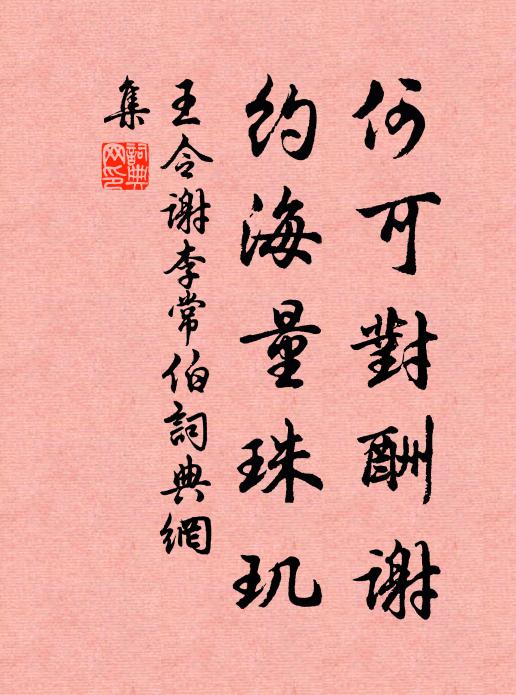 何可對酬謝
約海量珠玑
王令謝李常伯詞典網
集
詞典
网印